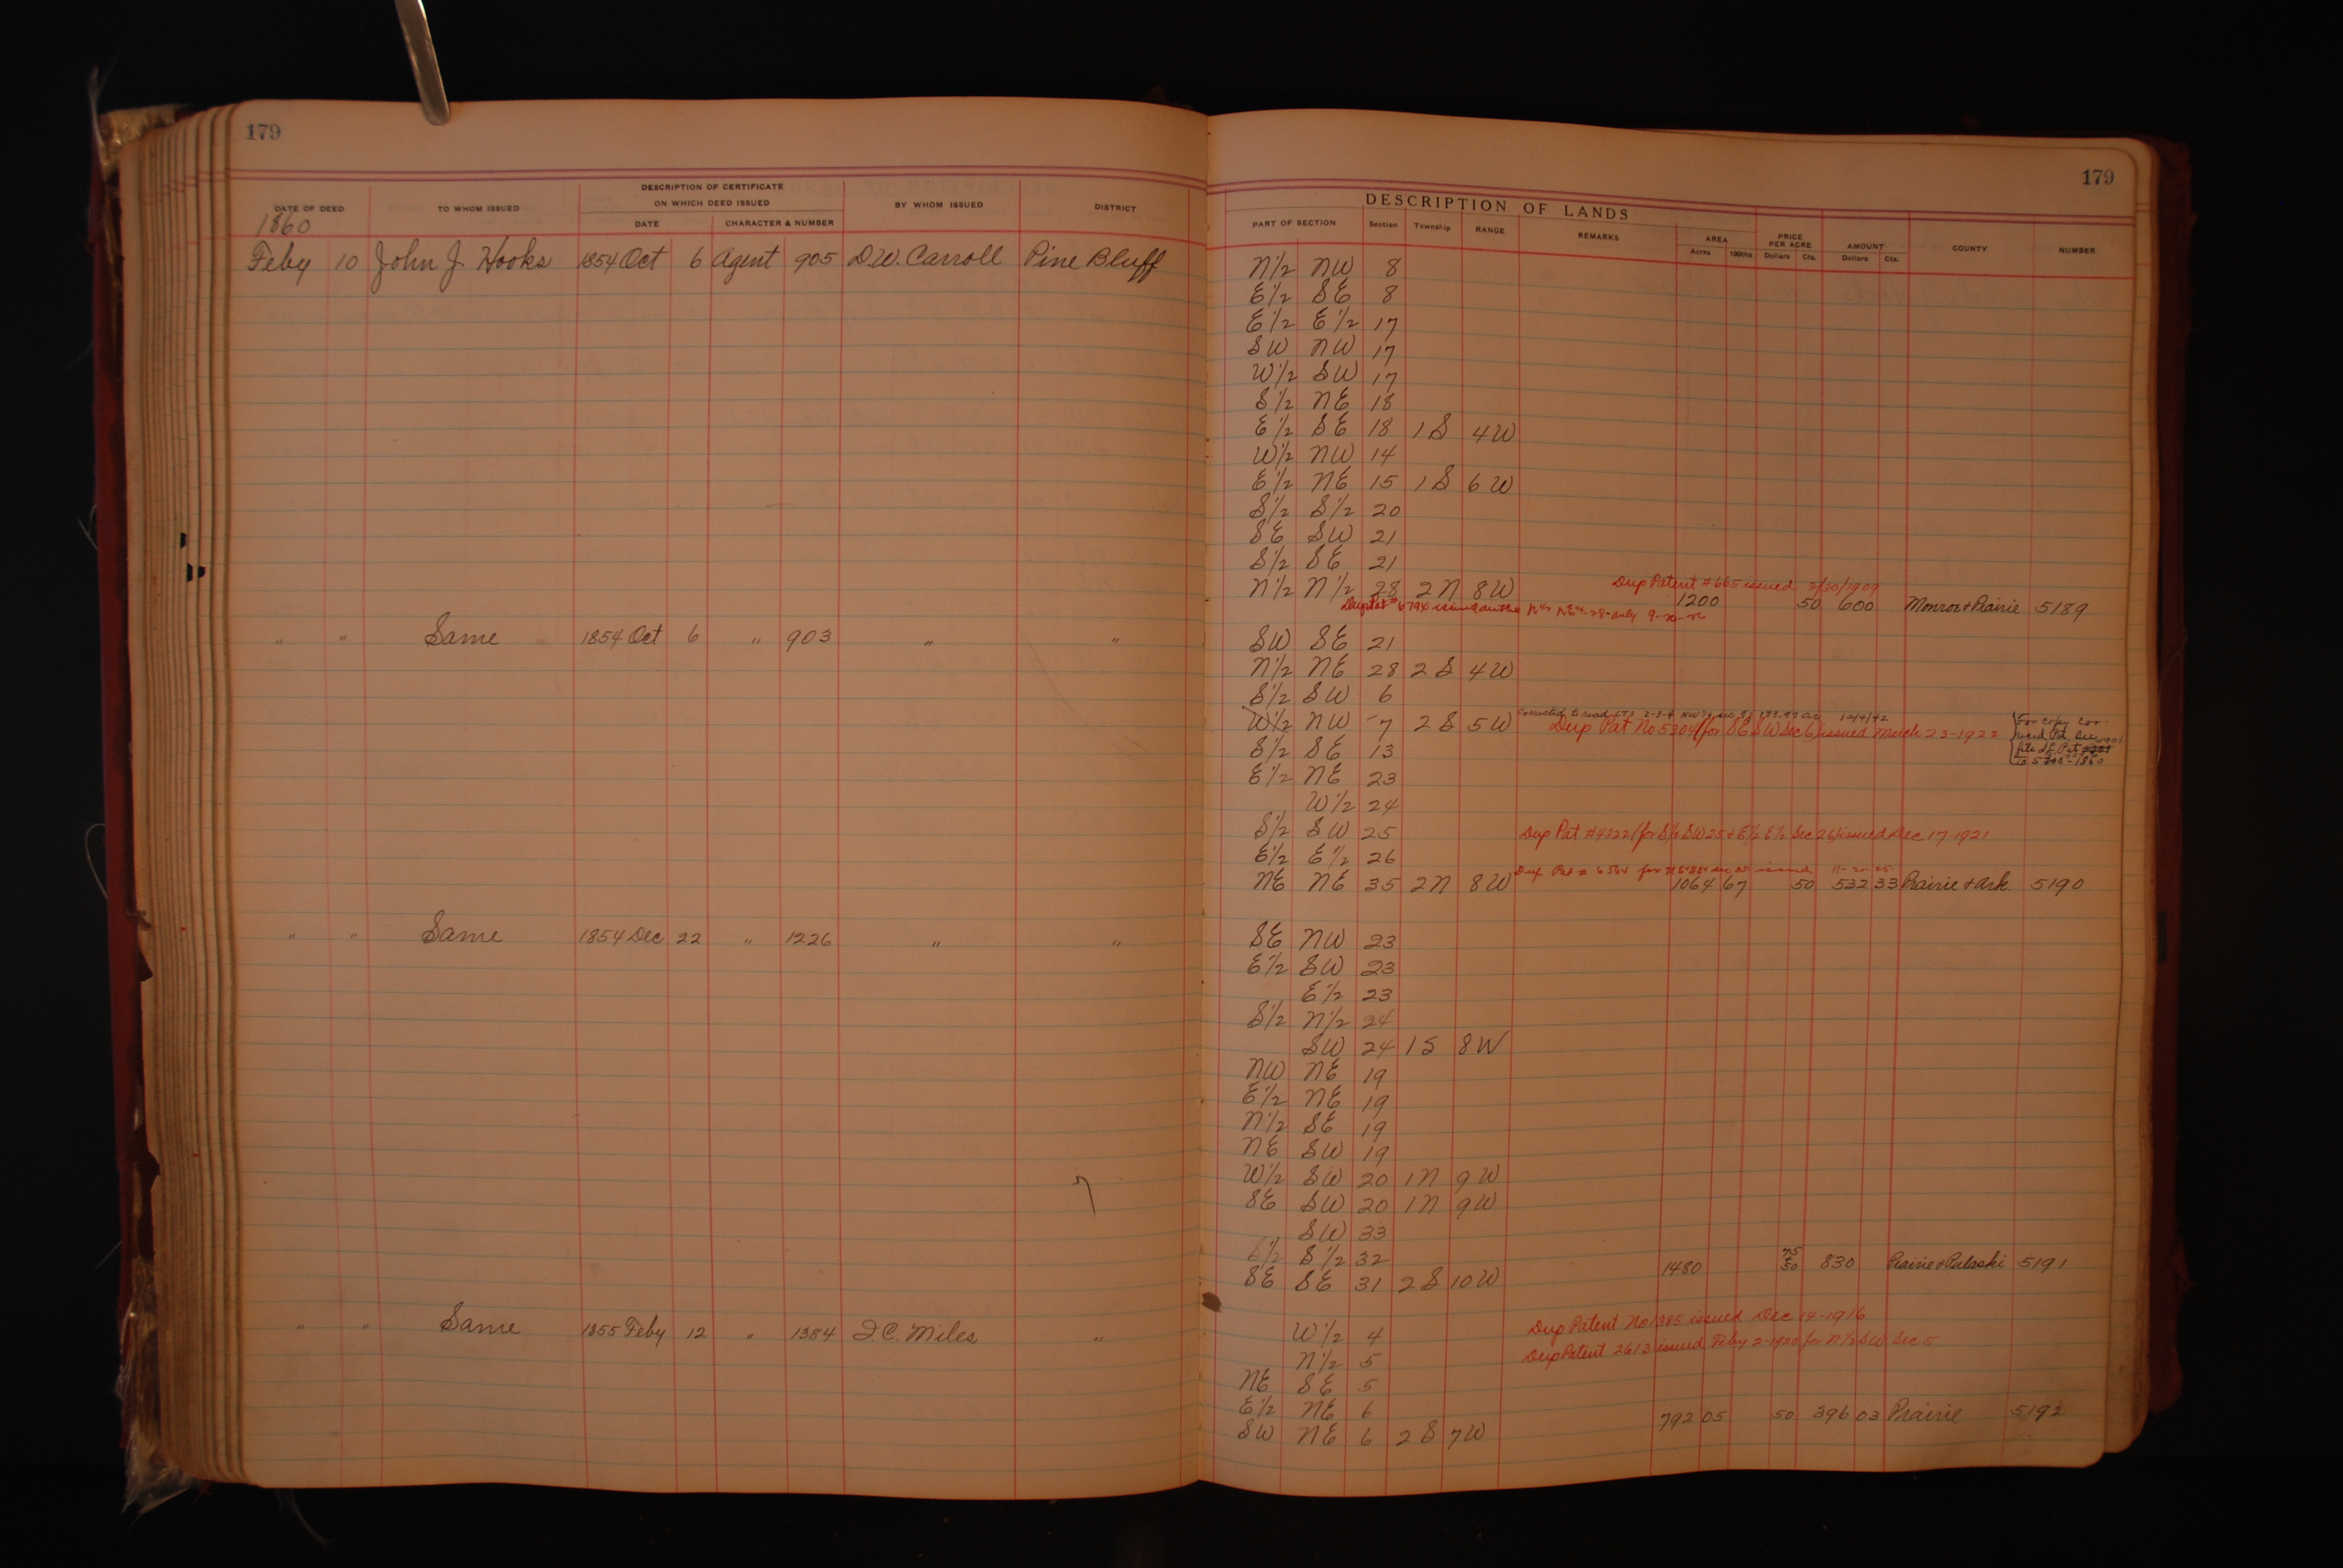 179
179
DESCRIPTION OF CERTIFICATE
ON WHICH DEED ISSUED
DATE OF DEED TO WHOM ISSUED DATE CHARACTER & NUMBER BY WHOM ISSUED DISTRICT
DESCRIPTION OF LANDS
PART OF SECTION Section Township RANGE REMARKS AREA Acres 100ths PRICE PER ACRE Dollars Cts. AMOUNT Dollars Cts. COUNTY NUMBER
1860
Feby 10 John J. Hooks 1854 Oct 6 Agent 905 D.W. Carroll Pine Bluff N½ NW 8
E½ SE 8
E½ E½ 17
SW NW 17
W½ SW 17
S½ NE 18
E½ SE 18 1S 4W
W½ NW 14
E½ NE 15 1S 6W
S½ S½ 20
SE SW 21
S½ SE 21
N½ N½ 28 2N 8W Dup Patent #665 issued 3/30/1909
1200 50 600 Monroe + Prairie 5189
" " Same 1854 Oct 6 " 903 " " SW SE 21
N½ NE 28 2S 4W
S½ SW 6
W½ NW 7 2S 5W Dup Pat No 5304 (for SE SW Sec 6) issued March 23-1922
S½ SE 13
E½ NE 23
W½ 24
S½ SW 25 Dup Pat #4222 (for S½ SW 25 + E½ E½ Sec 26) issued Dec 17-1921
E½ E½ 26
NE NE 35 2N 8W 1064 67 50 532 33 Prairie + Ark 5190
" " Same 1854 Dec 22 " 1226 " " SE NW 23
E½ SW 23
E½ 23
S½ N½ 24
SW 24 1S 8W
NW NE 19
E½ NE 19
N½ SE 19
NE SW 19
W½ SW 20 1N 9W
SE SW 20 1N 9W
SW 33
S½ 32
SE SE 31 2S 10W 1480 75 + 50 830 Prairie & Pulaski 5191
" " Same 1855 Feby 12 " 1384 J C. Miles " W½ 4 Dup Patent No 1385 issued Dec 14-1916
N½ 5 Dup Patent 2613 issued Feby 2-1920 for N½ SW Sec 5
NE SE 5
E½ NE 6
SW NE 6 2S 7W 792 05 50 396 03 Prairie 5192